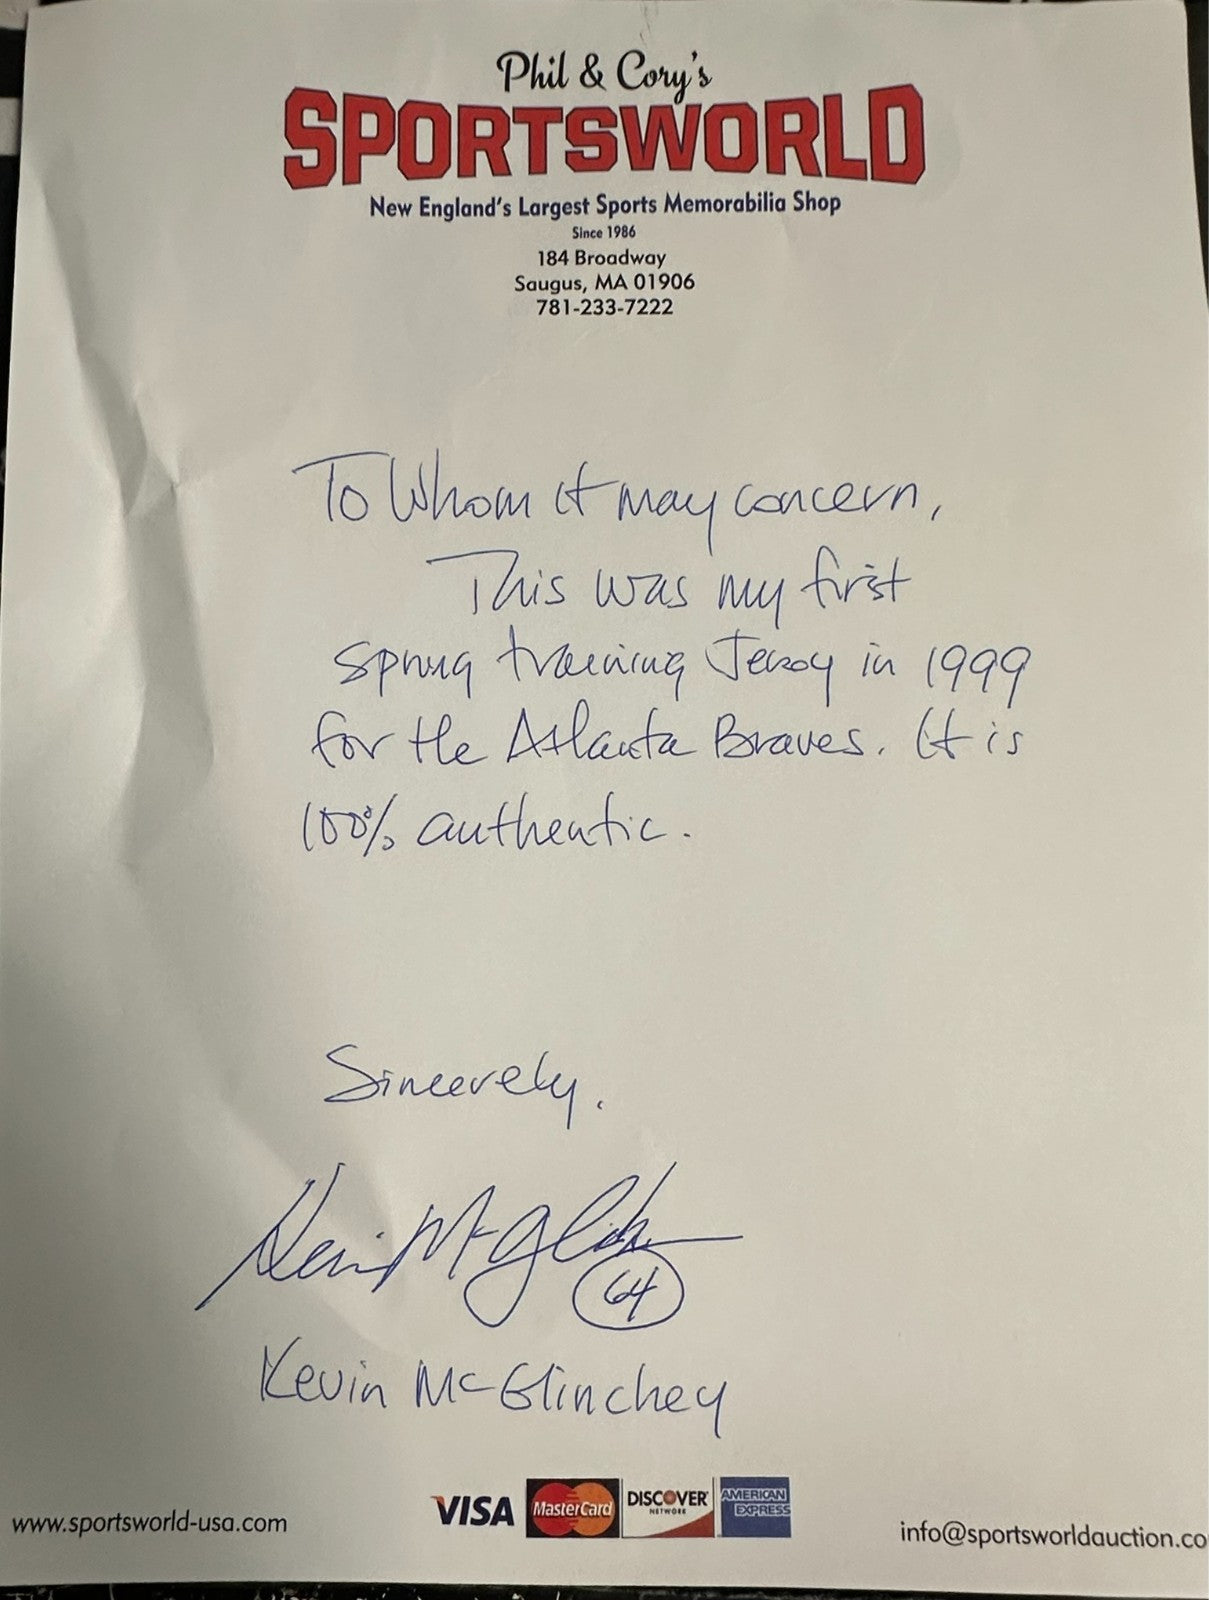 Phil & Cory's
SPORTSWORLD
New England's Largest Sports Memorabilia Shop
Since 1986
184 Broadway
Saugus, MA 01906
781-233-7222
To Whom it may concern,
This was my first
spring training Jersey in 1999
for the Atlanta Braves. It is
100% authentic.
Sincerely,
Kevin McGlinchey
64
Kevin McGlinchey
VISA MasterCard DISCOVER NETWORK AMERICAN EXPRESS
www.sportsworld-usa.com
info@sportsworldauction.co